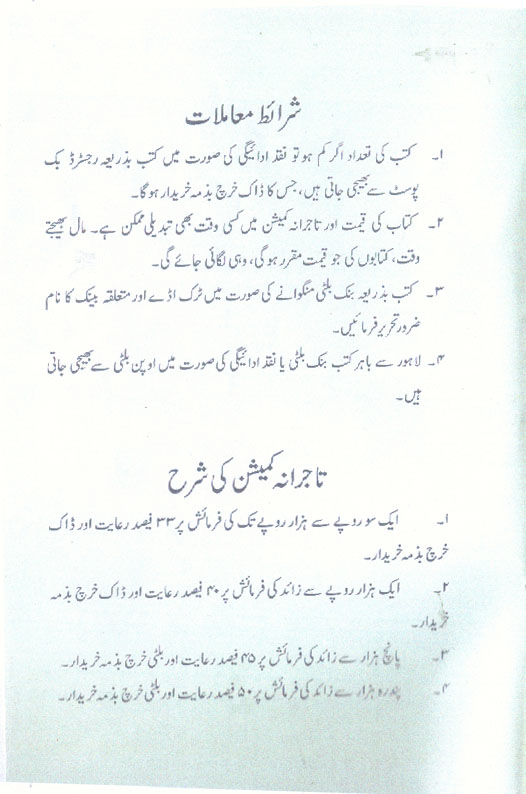 شرائط معاملات
۱۔ کتب کی تعداد اگر کم ہو تو نقد ادائیگی کی صورت میں کتب بذریعہ رجسٹرڈ بک
پوسٹ سے بھیجی جاتی ہیں، جس کا ڈاک خرچ بذمہ خریدار ہوگا۔
۲۔ کتاب کی قیمت اور تاجرانہ کمیشن میں کسی وقت بھی تبدیلی ممکن ہے۔ مال بھیجتے
وقت، کتابوں کی جو قیمت مقرر ہوگی، وہی لگائی جائے گی۔
۳۔ کتب بذریعہ بنک بلٹی منگوانے کی صورت میں ٹرک اڈے اور متعلقہ بینک کا نام
ضرور تحریر فرمائیں۔
۴۔ لاہور سے باہر کتب بنک بلٹی یا نقد ادائیگی کی صورت میں اوپن بلٹی سے بھیجی جاتی
ہیں۔
تاجرانہ کمیشن کی شرح
۱۔ ایک سو روپے سے ہزار روپے تک کی فرمائش پر ۳۳ فیصد رعایت اور ڈاک
خرچ بذمہ خریدار۔
۲۔ ایک ہزار روپے سے زائد کی فرمائش پر ۴۰ فیصد رعایت اور ڈاک خرچ بذمہ
خریدار۔
۳۔ پانچ ہزار سے زائد کی فرمائش پر ۴۵ فیصد رعایت اور بلٹی خرچ بذمہ خریدار۔
۴۔ پندرہ ہزار سے زائد کی فرمائش پر ۵۰ فیصد رعایت اور بلٹی خرچ بذمہ خریدار۔